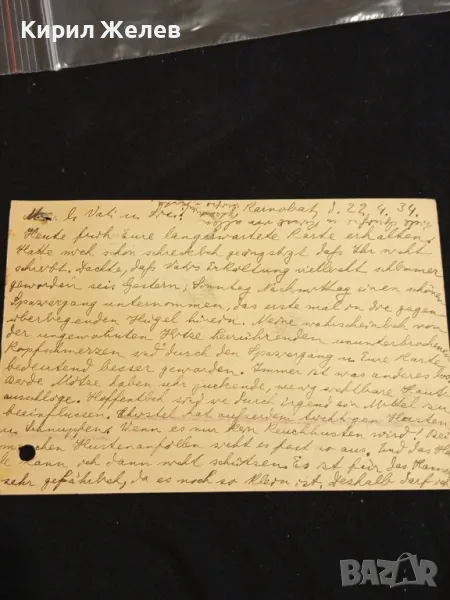 Кирил Желев
L. Vati u. Irei! Karnobat, d. 22.4.34.
Heute früh Eure langerwartete Karte erhalten.
Hatte mich schon schrecklich geängstigt, daß Ihr nicht
schreibt. Dachte, daß Vatis Erkältung vielleicht schlimmer
geworden sei. Gestern, Sonntag Nachmittag einen schönen
Spaziergang unternommen, das erste mal in die gegen-
überliegenden Hügel hinein. Meine wahrscheinlich von
der ungewohnten Hitze herrührenden ununterbrochenen
Kopfschmerzen sind durch den Spaziergang u. Eure Karte
bedeutend besser geworden. Immer ist was anderes los.
Beide haben nur juckende, wenig sichtbare Haut-
ausschläge. Hoffentlich sind sie durch irgend ein Mittel zu
beeinflussen. hat außerdem Husten
u. Schnupfen. Wenn es nur kein Keuchhusten wird. Bei
manchen Hustenanfällen sieht es fast so aus. Und das
kann ich dann nicht schützen. Es ist für das
sehr gefährlich, da es noch so klein ist. Deshalb darf ich
BAZAR